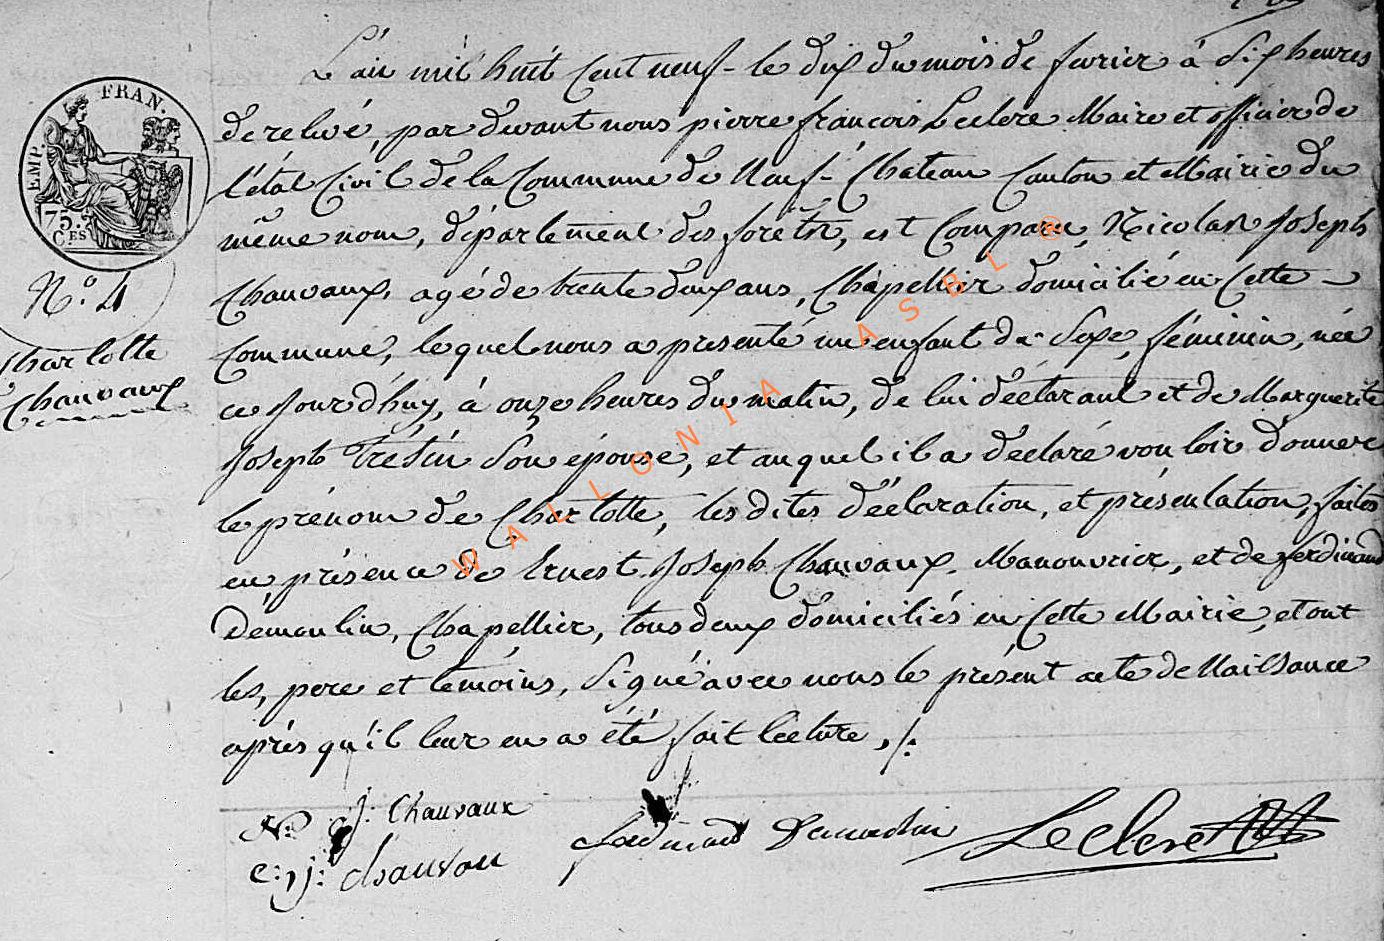 L'an mil huit Cent neuf - le dix du mois de fevrier à Six heures
EMP. FRAN.
75. CES
de relevé, par devant nous pierre françois Leclere Maire et officier de
l'état Civil de la Commune de Neuf-Chateau Canton et Mairie du
même nom, département des forêts, est Comparu, Nicolas Joseph
Chauvaux, agé de trente deux ans, Chapellier domicilié en Cette -
N.° 4
Charlotte
Chauvaux
Commune, lequel nous a presenté un enfant de Sexe, féminin, née
ce Jourd'huy, à onze heures du matin, de lui déclarant et de Marguerite
Joseph Trésin Son épouse, et auquel il a déclaré vouloir donner
le prénom de Charlotte, les dites déclaration, et présentation, faites
en présence de Ernest Joseph Chauvaux, Manouvrier, et de ferdinand
Démoulin, Chapellier, tous deux domiciliés en Cette Mairie, et ont
les, pere et témoins, Signé avec nous le présent acte de Naissance
après qu'il leur en a été fait lecture, /.
N: J: Chauvaux
e: j: chauvau
ferdinand Demoulin
Leclere
WALLONIA ASBL ®